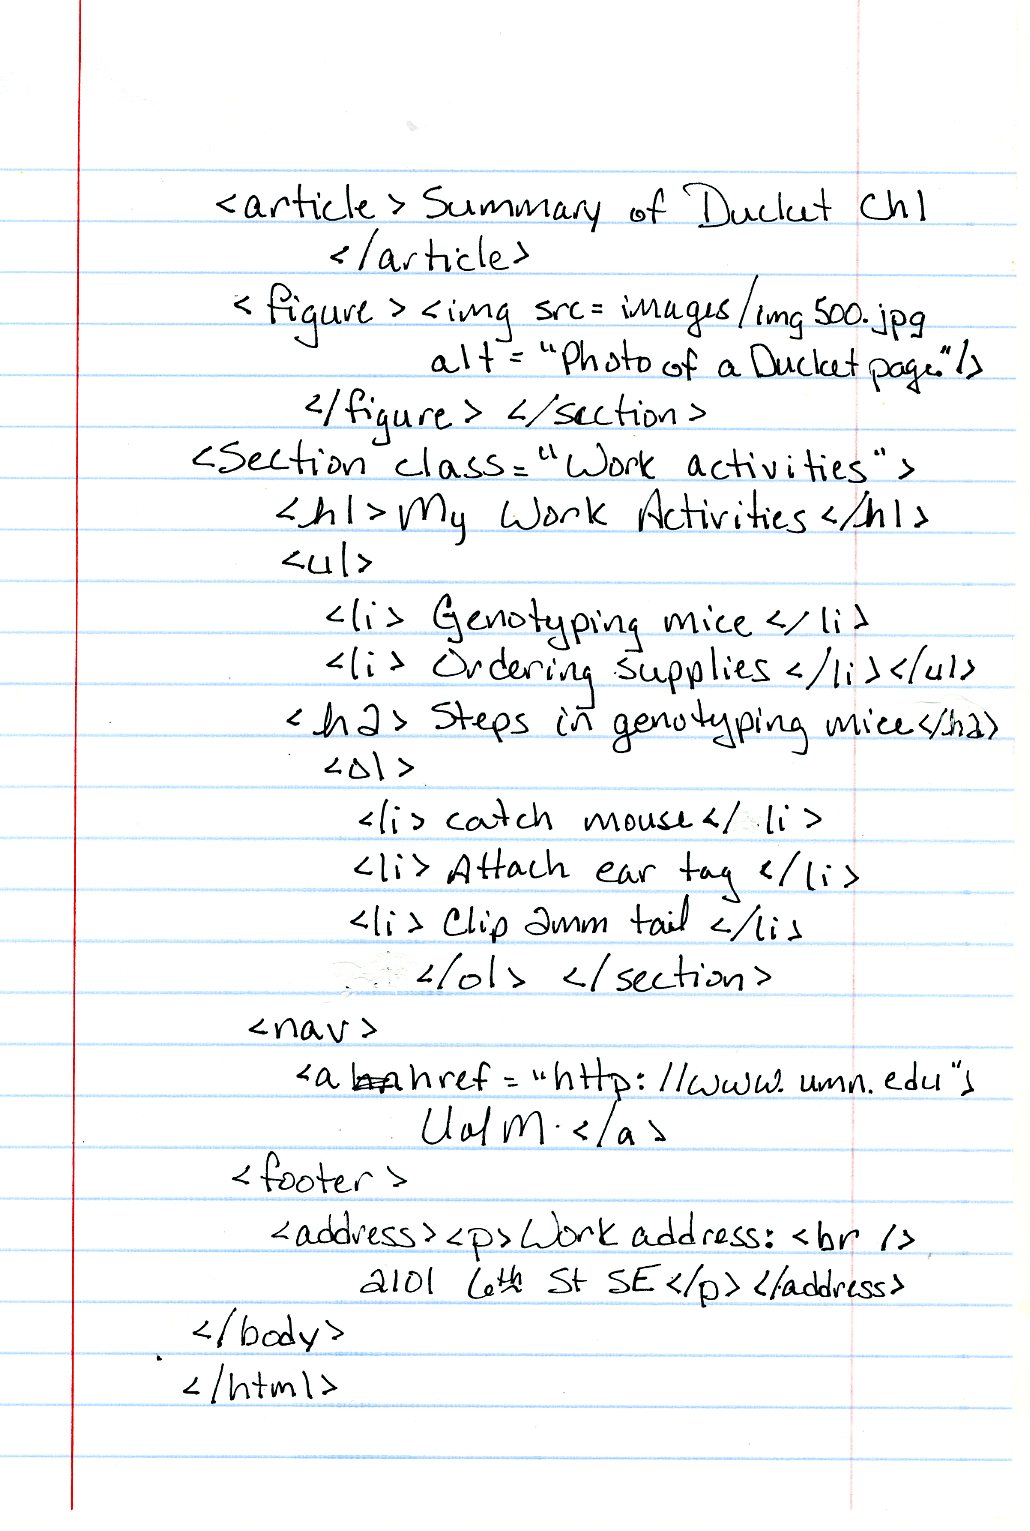 <article> Summary of Ducket Ch1
</article>
<figure> <img src= images/img500.jpg
alt = "Photo of a Ducket page."/>
</figure> </section>
<Section class="Work activities">
<h1>My Work Activities</h1>
<ul>
<li> Genotyping mice </li>
<li> Ordering supplies </li></ul>
<h2> Steps in genotyping mice</h2>
<ol>
<li> catch mouse</ li>
<li> Attach ear tag </li>
<li> Clip 2mm tail </li>
</ol> </section>
<nav>
<a href = "http://www.umn.edu">
U of M.</a>
<footer>
<address><p>Work address: <br />
2101 6th St SE</p></address>
</body>
</html>